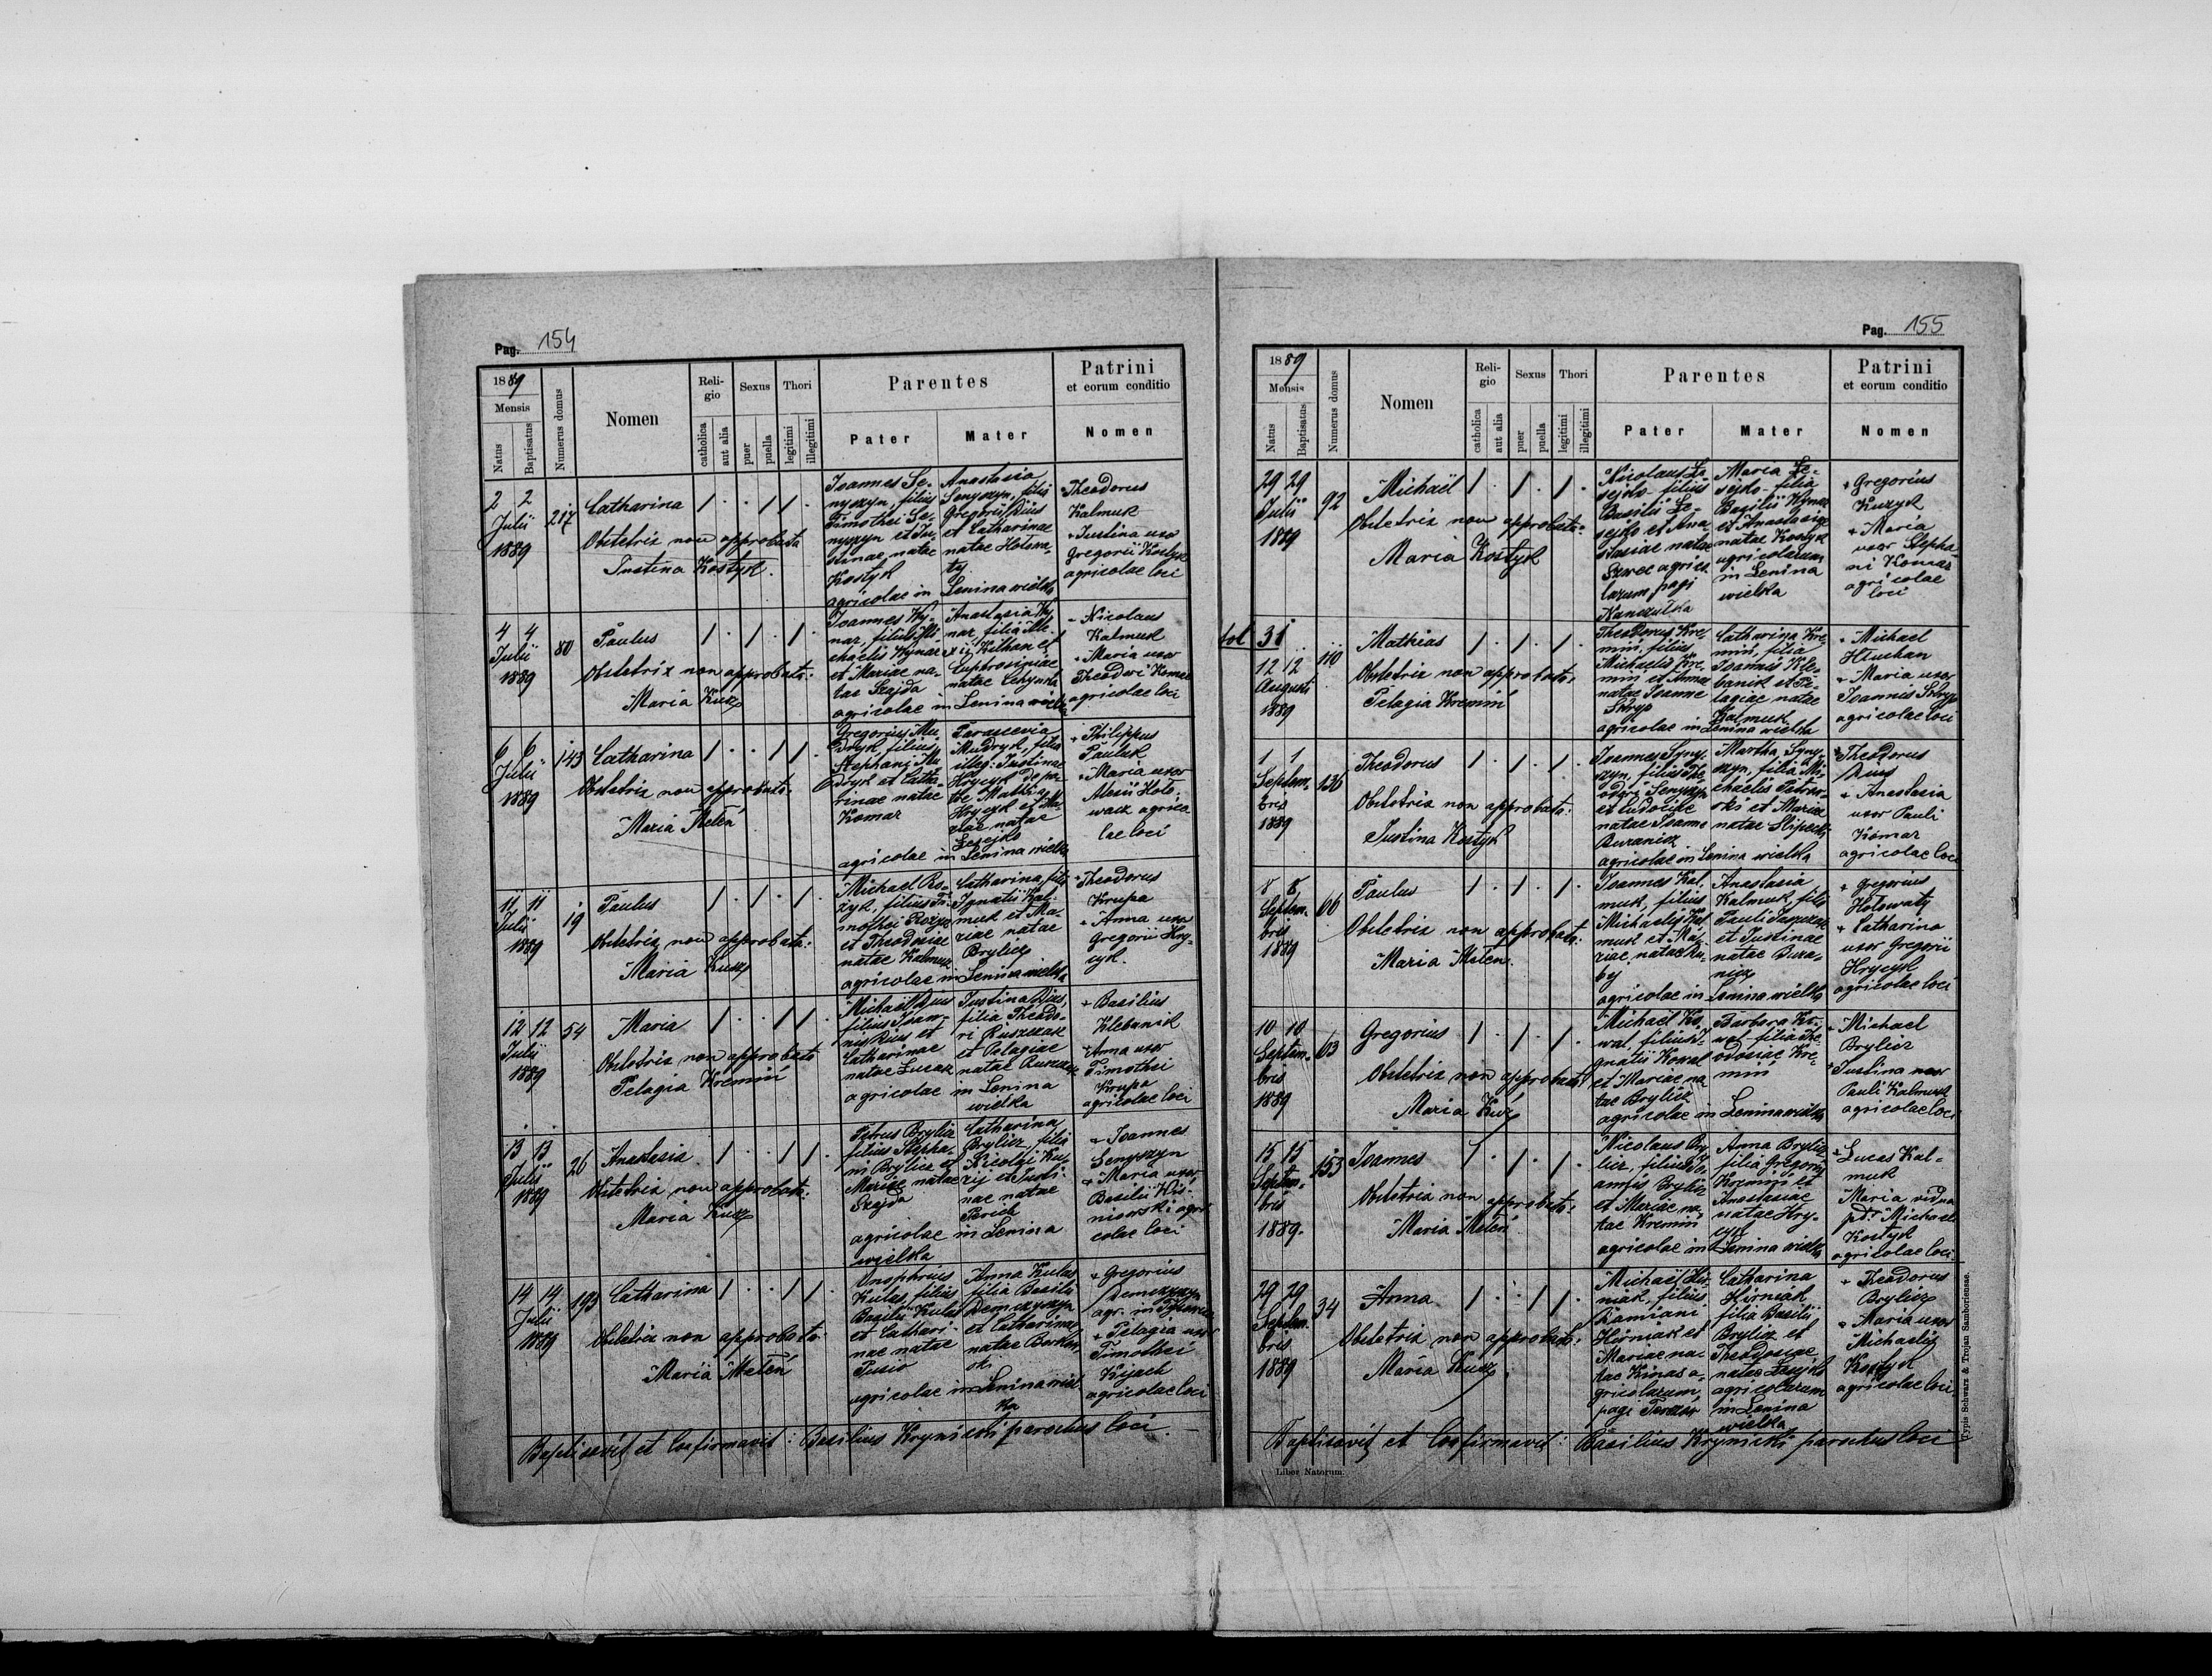 Pag. 154
1889
Mensis
Natus
Baptisatus
Numerus domus
Nomen
Religio
catholica
aut alia
Sexus
puer
puella
Thori
legitimi
illegitimi
Parentes
Pater
Mater
Patrini
et eorum conditio
Nomen
2 2
Julii
1889
217
Catharina
Obstetrix non approbata
Justina Kostyk.
Joannes Se-
nyszyn, filius
Timothei Se-
nyszyn et Ju-
stinae natae
Kostyk
Anastasia
Senyszyn, filia
Gregorii Dius
et Catharinae
natae Hołowa-
ty.
agricolae in Lenina wielka
Theodorus
Kalmuk
+ Justina uxor
Gregorii Kostyk
agricolae loci
4 4
Julii
1889
80
Paulus
Obstetrix non approbata:
Maria Kusz
Joannes Hy-
nar, filius Mi-
chaelis Hynar
et Mariae na-
tae Szajda
Anastasia Hy-
nar, filia Ale-
xii Kithan et
Euphrosiniae
natae
agricolae in Lenina wielka
+ Nicolaus
Kalmuk
+ Maria uxor
Theodori Komar
agricolae loci
6 6
Julii
1889
143
Catharina
Obstetrix non approbata:
Maria Meteń
Gregorius Mu-
dryk filius
Stephani Mu-
dryk et Catha-
rinae natae
Komar
Parascevia
Mudryk, filia
illeg: Justinae
Hrycyk de pa-
tre Mathia
Hrycyk et Ma-
riae natae
Łesejko
agricolae in Lenina wielka
+ Philippus
Pauluk
+ Maria uxor
Alexii Hoło-
wacz agrico
lae loci
11 11
Julii
1889
19
Paulus
Obstetrix non approbata:
Maria Kusz
Michael Ro-
zyk, filius Ti-
mothei Rozyk
et Theodosiae
natae Kalmuk
Catharina, filia
Ignatii Kal-
muk et Ma-
riae natae
Brylicz
agricolae in Lenina wielka
+ Theodorus
Krupa
+ Anna uxor
Gregorii Hry-
cyk.
12 12
Julii
1889
54
Maria
Obstetrix non approbata
Pelagia Kremiń
Michaël Dius
filius Joan-
nis Dius et
Catharinae
natae Łucak
Justina Dius,
filia Theodo-
ri Ruszczak
et Pelagiae
natae
agricolae in Lenina
wielka
+ Basilius
Klebanik
+ Anna uxor
Timothei
Krupa
agricolae loci
13 13
Julii
1889
26
Anastasia
Obstetrix non approbata:
Maria Kusz
Petrus Brylicz
filius Stepha-
ni Brylicz et
Mariae natae
Szajda
Catharina
Brylicz, filia
Nicolai Ku-
rij et Justi-
nae natae
Perich
agricolae in Lenina
wielka
+ Joannes
Senyszyn
+ Maria uxor
Basilii Wis-
niowski agri
colae loci
14 14
Julii
1889
193
Catharina
Obstetrix non approbata
Maria Meteń
Onophrius
Kulas, filius
Basilii Kulas
et Cathari-
nae natae
Pusio
Anna Kulas
filia Basilii
Demczyszyn
et Catharinae
natae
agricolae in Lenina wiel
ka
+ Gregorius
Demczyszyn
agr. in
+ Pelagia uxor
Timothei
Kijach
agricolae loci
Baptisavit et Confirmavit: Basilius Krynicki parochus loci.
Pag. 155
1889
Mensis
Natus
Baptisatus
Numerus domus
Nomen
Religio
catholica
aut alia
Sexus
puer
puella
Thori
legitimi
illegitimi
Parentes
Pater
Mater
Patrini
et eorum conditio
Nomen
29 29
Julii
1889
92
Michaël
Obstetrix non approbata:
Maria Kostyk
Nicolaus Łe-
sejko - filius
Basilii Łe-
sejko et Ana-
stasiae natae
Szwec agrico
larum pagi
Maria Łe-
sejko - filia
Basilii Hynar
et Anastasiae
natae Kostyk
agricolarum
in Lenina
wielka
+ Gregorius
Kuzyk
+ Maria
uxor Stepha-
ni Komar
agricolae
loci
31
12 12
Augusti
1889
110
Mathias
Obstetrix non approbata:
Pelagia Kremiń
Theodorus Kre-
miń, filius
Michaelis Kre-
miń et Annae
natae Joanne
Skrzyp
Catharina Kre-
miń, filia
Joannis Kle-
banik et Pe-
lagiae natae
Kalmuk
agricolae in Lenina wielka
+ Michael
Hłuchan
+ Maria uxor
Joannis Skrzyp
agricolae loci
1 1
Septem-
bris
1889
136
Theodorus
Obstetrix non approbata:
Justina Kostyk
Joannes Syny-
szyn, filius The-
odori Senyszyn
et Eudociae
natae Joanne
Buranicz
Martha Syny-
szyn, filia Mi-
chaelis Petrow-
ski et Mariae
natae Slipecki
agricolae in Lenina wielka
+ Theodorus
Dius
+ Anastasia
uxor Pauli
Komar
agricolae loci
8 8
Septem-
bris
1889
66
Paulus
Obstetrix non approbata:
Maria Meteń.
Joannes Kal-
muk, filius
Michaelis Kal-
muk et Ma-
riae natae Ku-
by
Anastasia
Kalmuk, filia
Pauli
et Justinae
natae Bura-
nicz
agricolae in Lenina wielka
+ Gregorius
Hołowaty
+ Catharina
uxor Gregorii
Hrycyk
agricolae loci
10 10
Septem-
bris
1889
63
Gregorius
Obstetrix non approbata:
Maria Kusz
Michael Ko-
wal, filius I-
gnatii Kowal
et Mariae na
tae Brylicz
Barbara Ko-
wal filia The-
odosiae Kre-
miń
agricolae in Lenina wielka
+ Michael
Brylicz
+ Justina uxor
Pauli Kalmuk
agricolae loci
15 15
Septem-
bris
1889.
153
Joannes
Obstetrix non approbata:
Maria Meteń
Nicolaus Bry-
licz, filius Jo-
annis Brylicz
et Mariae na-
tae Kremiń
Anna Brylicz
filia Gregorii
Kremiń et
Anastasiae
natae Hry-
cyk
agricolae in Lenina wielka
+ Lucas Kal-
muk
Maria vidua
pd. Michaele
Kostyk
agricolae loci
29 29
Septem-
bris
1889
34
Anna
Obstetrix non approbata:
Maria Kusz
Michaël Hir-
niak, filius
Damiani
Hirniak et
Mariae na-
tae Kinas a-
gricolarum
pagi
Catharina
Hirniak
filia Basilii
Brylicz et
Theodosiae
natae Łesejko
agricolarum
in Lenina
wielka
+ Theodorus
Brylicz
+ Maria uxor
Michaelis
Kostyk
agricolae loci
Baptisavit et Confirmavit: Basilius Krynicki parochus loci
Liber Natorum.
Typis Schwarz & Trojan Samboriensae.